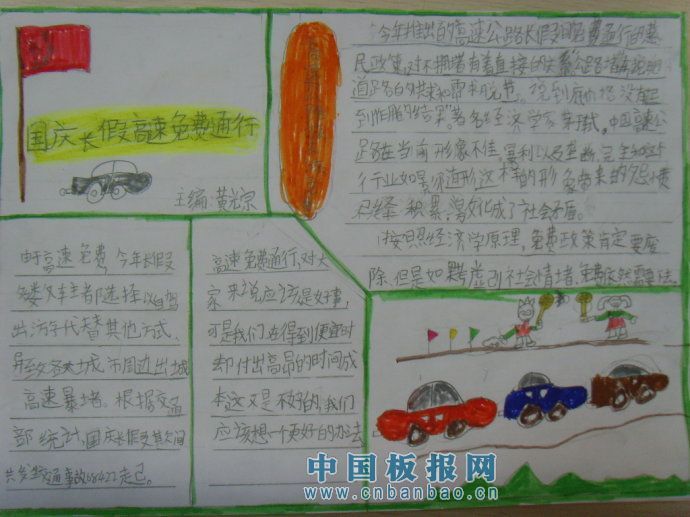 国庆长假高速免费通行
主编:黄宗
今年推出的高速公路长假日免费通行的惠
民政策,对不拥堵有着直接的关系公路堵再说明
道路的供求和需求脱节。说到底价格没有起
到作用的结果"著名经济学家茅于轼。中国高速公
路在当前形象不佳,暴利以及垄断,完全和
行行业如影随形这样的形象带来的怨愤
积累激化成了社会矛盾。
按照经济学原理,免费政策肯定要废
除,但是如果考虑到社会情绪,免费依然需要法
由于高速免费,今年长假
多数车主都选择以自驾
出游年代替其他方式、
导致各大城市周边出城
高速暴堵。根据交通
部统计,国庆长假期间
共发生交通事故68422起。
高速免费通行,对大
家来说应该是好事,
可是我们在得到便宜时
却付出高昂的时间成
本这又是不够的,我们
应该想一个更好的办法
中国板报网
www.cnbanbao.cn